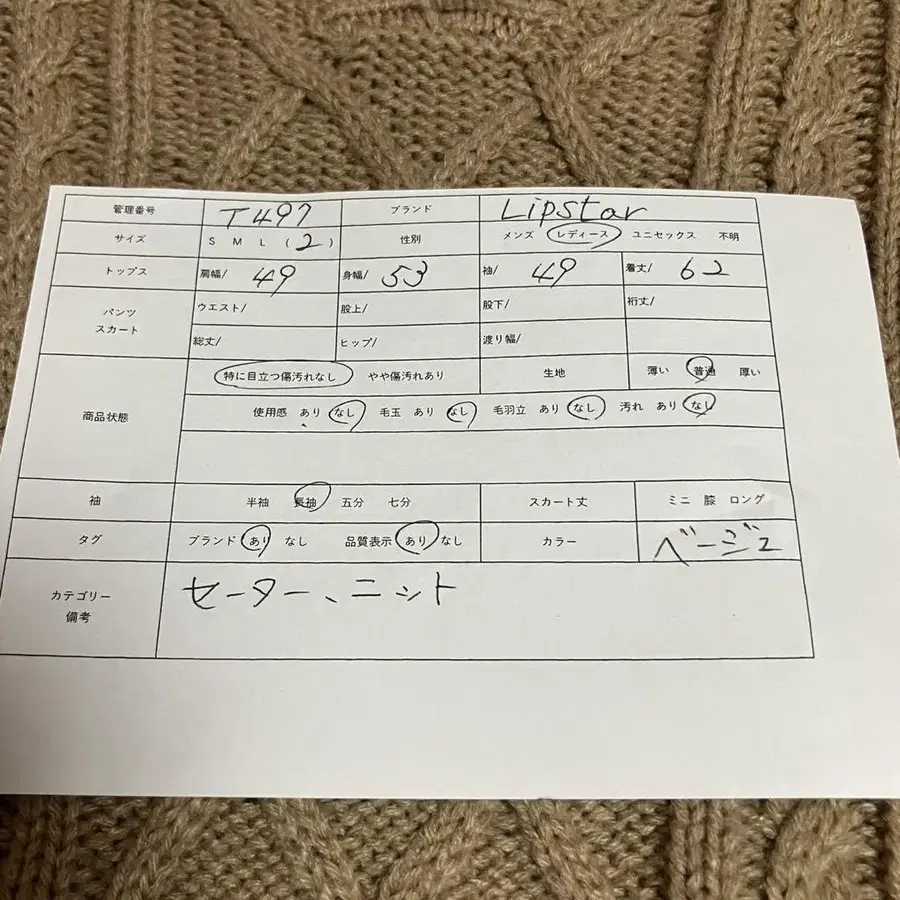 管理番号 T497 ブランド Lipstar
サイズ S M L (2) 性別 メンズ レディース ユニセックス 不明
トップス 肩幅/ 49 身幅/ 53 袖/ 49 着丈/ 62
パンツ スカート ウエスト/ 股上/ 股下/ 裄丈/
総丈/ ヒップ/ 渡り幅/
商品状態 特に目立つ傷汚れなし やや傷汚れあり 生地 薄い 普通 厚い
使用感 あり なし 毛玉 あり なし 毛羽立 あり なし 汚れ あり なし
袖 半袖 長袖 五分 七分 スカート丈 ミニ 膝 ロング
タグ ブランド あり なし 品質表示 あり なし カラー ベージュ
カテゴリー 備考 セーター、ニット